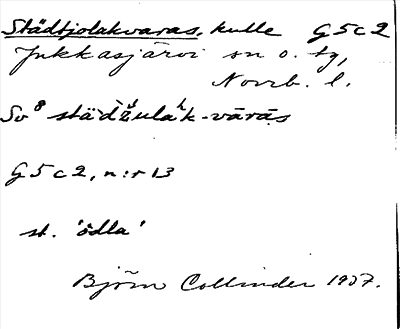 Städtjolakvaras, kulle G5c2
Jukkasjärvi sn o. tg,
Norrb. l.
So⁸ städžulaʰk-vārás
G5c2, n:r 13
st. 'ödla'
Björn Collinder 1937.